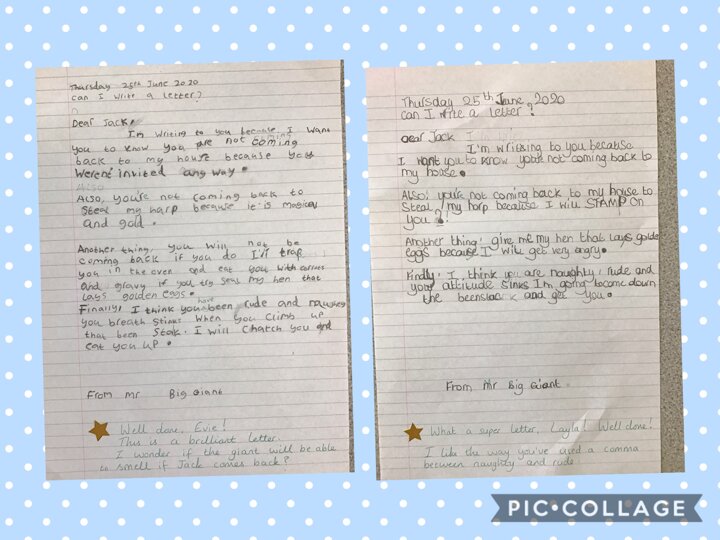 Thursday 25th June 2020
Can I write a letter?
Dear Jack,
I'm writing to you because I want
you to know you are not coming
back to my house because you
werent invited any way.
Also, you're not coming back to
Steal my harp because is magical
and gold.
Another thing, you will not be
coming back if you do I'll trap
you in the oven and eat you with carries
and gravy if you try seal my hen that
lays golden eggs.
Finally, I think you have been rude and naughty
you breath stinks. When you climb up
that been Stalk. I will Chatch you and
eat you up.
From Mr Big Giant
Well done, Evie!
This is a brilliant letter.
I wonder if the giant will be able
to smell if Jack comes back?
Thursday 25th June 2020
Can I write a letter?
Dear Jack
I'm writing to you because
I want you to know your not coming back to
my house.
Also, you're not coming back to my house to
Steal my harp because I will STAMP on
you!
Another thing, give me my hen that lays golden
eggs because I will get very angry.
Finally, I think you are naughty, rude and
your attitude sinks I'm going to come down
the beenstack and get you.
From Mr Big Giant
What a super letter, Layla! Well done!
I like the way you've used a comma
between naughty and rude.
PIC•COLLAGE